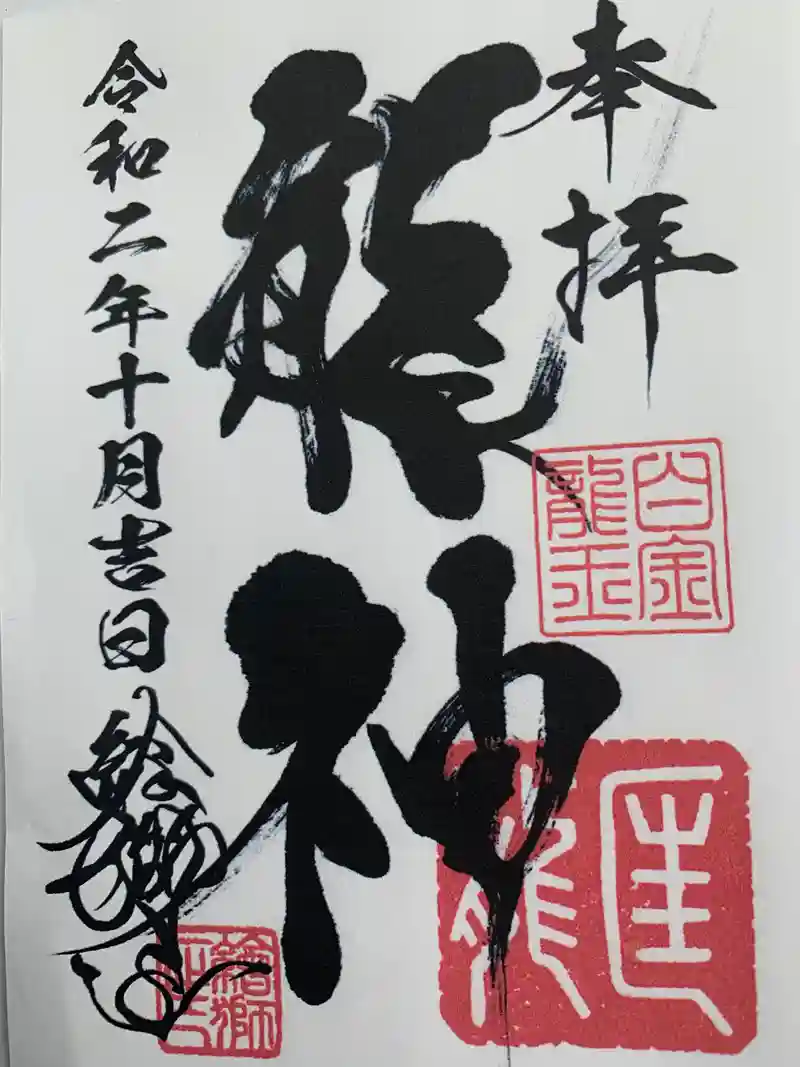 奉拝
龍神
令和二年十月吉日
白金
龍王